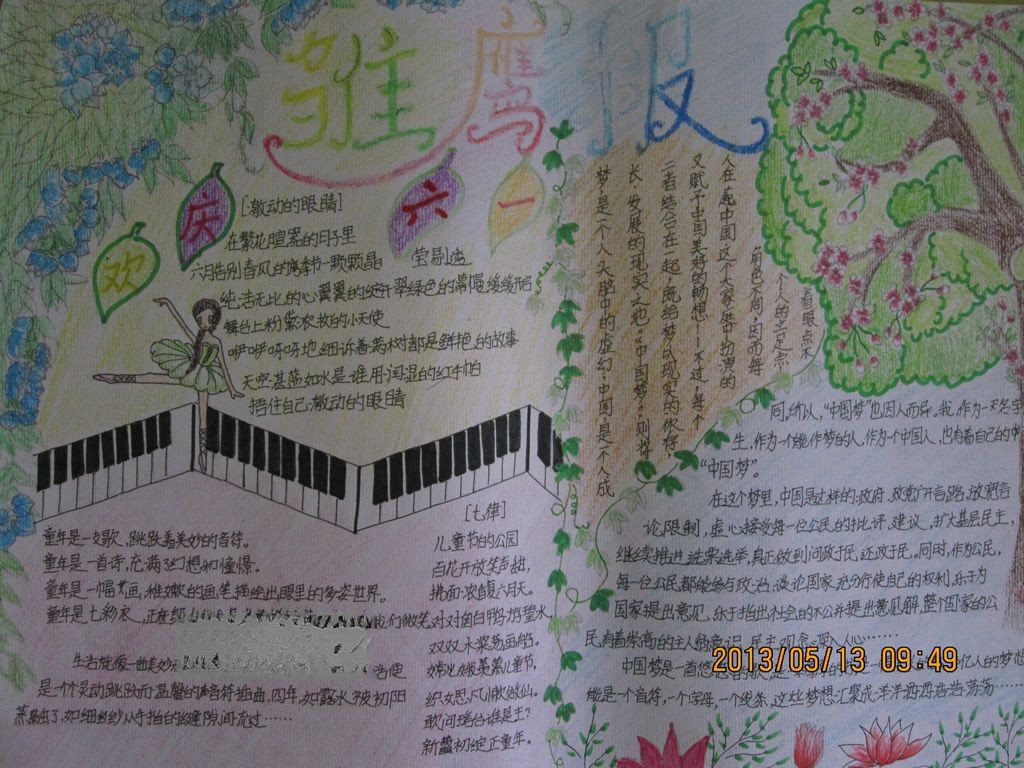 雏鹰报
欢庆六一
[激动的眼睛]
在繁花喧嚣的月子里
六月告别春风的季节一颗颗晶莹易逝
纯洁无比的心翼翼的绽开翠绿色的
舞台上粉紫浓妆的小天使
咿咿呀呀地细诉着满树都是鲜艳的故事
天空湛蓝如水是谁用润湿的红手帕
捂住自己激动的眼睛
童年是一支歌，跳跃着美妙的音符。
童年是一首诗，充满了幻想和憧憬。
童年是一幅画，稚嫩的画笔描绘出眼里的多姿世界。
童年是七彩衣，正在
生活就像一曲美妙
是一个个灵动跳跃而温馨的声音符插曲，四年，如露水被初阳
蒸融了，如细纱从守拙的缝隙间流过……
[七律]
儿童节的公园
百花开放笑声甜，
拂面浓馥六月天。
对对白鸭荡碧水
双双木桨荡画船。
嫦娥娥羡儿童节，
织女思凡懒做仙。
敢问瑶台谁是主？
新蕾初绽正童年。
梦，是个人大脑中的虚幻；中国，是个人成
长、发展的现实之地。“中国梦”则将
二者结合在一起，既给梦以现实的依存，
又赋予中国美好的畅想——不过，每个
人在越中国这个大家庭中扮演的
角色不同，因而每
个人的立足点
着眼点不
同，所以，“中国梦”也因人而异。我，作为一天名学
生，作为一个能作梦的人，作为个中国人，也有着自己的中
“中国梦”。
在这个梦里，中国是这样的：政府，致力广开言路，放宽言
论限制，虚心接受每一位公民的批评、建议，扩大基层民主，
继续推进选票选举，真正做到问政于民，还政于民。同时，作为公民，
每一位公民都能够参与政治，谈论国家，充分行使自己的权利，乐于为
国家提出意见，乐于指出社会的不公并提出意见解，整个国家的公
民，有着崇高的主人翁意识，民主观念深入人心……
中国梦是一首悠
亿人的梦想
能是一个音符，一个字母，一个线条，这些梦想汇聚成洋洋洒洒浩浩荡荡……
2013/05/13 09:49